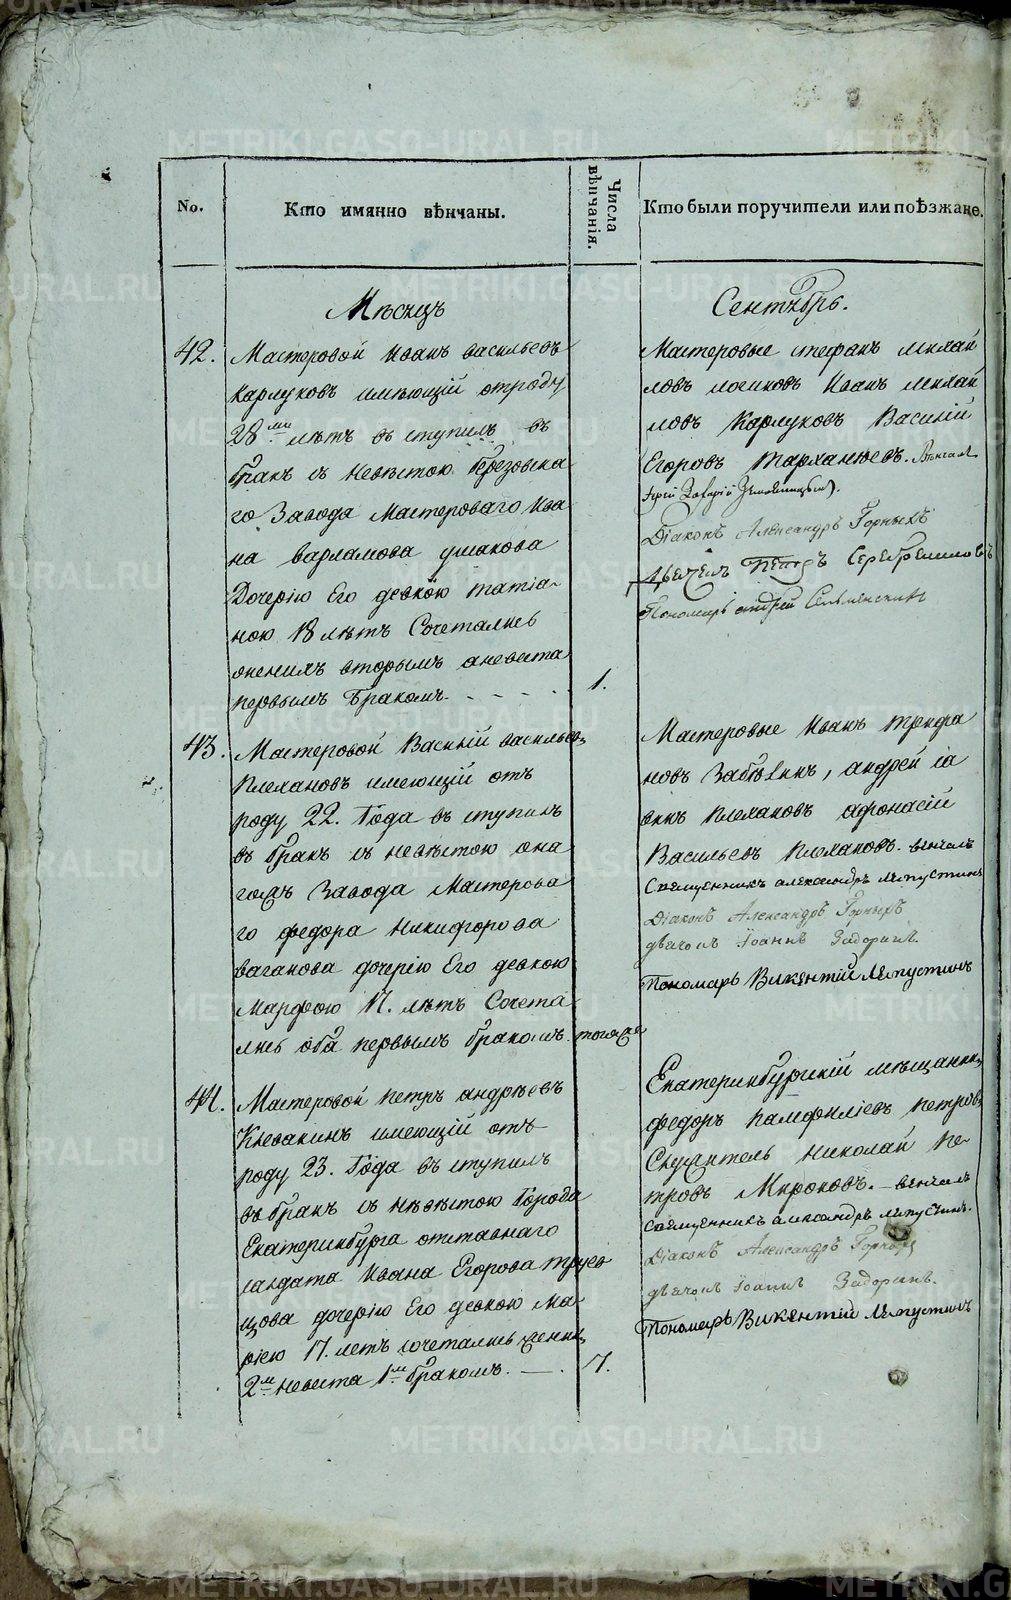 No.
Кто имянно вѣнчаны.
Числа вѣнчанія.
Кто были поручители или поѣзжане.
Мѣсяцъ
Сентябрь.
42.
Мастеровой Иванъ васильевъ
Карлуковъ имѣющій отроду
28ми лѣтъ въ ступилъ въ
бракъ съ невѣстою березовска
го Завода Мастероваго Ива
на варламова ушакова
Дочерію Его девкою татіа-
ною 18 лѣтъ Сочетались
онженихъ вторымъ аневеста
первымъ бракомъ.
1.
Мастеровые стефанъ михаи
ловъ Иванъ михаи
ловъ Карлуковъ Василій
Егоровъ тархановъ. Венчал
Іерей
Діаконъ Александръ Горныхъ
Дьячекъ Петръ Серебренниковъ
Пономарь андрей
43.
Мастеровой Василій васильев
Плехановъ имеющій отъ
роду 22. Года въ ступилъ
въ бракъ съ невѣстою она
гожъ Завода Мастерова
го федора Никифорова
ваганова дочерію Его девкою
Марфою 17. лѣтъ Сочета
лись оба первымъ бракомъ. тогоже
Мастеровые Иванъ трифа
новъ Забѣлинъ, андрей іа
Плехановъ афонасій
Васильевъ Плехановъ. венчалъ
Священникъ александръ Лепустинъ
Діаконъ Александръ Горныхъ
дьячокъ Іоаннъ Задоринъ.
Пономарь Викентій Лепустинъ
44.
Мастеровой петръ андрѣевъ
Кневакинъ имеющій отъ
роду 23. Года въ ступилъ
въ бракъ съ невѣстою Города
Екатеринбурга отставнаго
салдата Ивана Егорова трусо
цова дочерію Его девкою Ма-
ріею 17. летъ сочетались жених
2м невеста 1м бракомъ.
7.
Екатеринбургскій мѣщанин
федоръ памфиліевъ петров
Служитель николай пе-
тровъ Мироновъ. венчалъ
Священникъ александръ лепустинъ.
Діаконъ Александръ Горных
дьячокъ Іоаннъ Задоринъ.
Пономарь Викентій Лепустинъ
METRIKI.GASO-URAL.RU